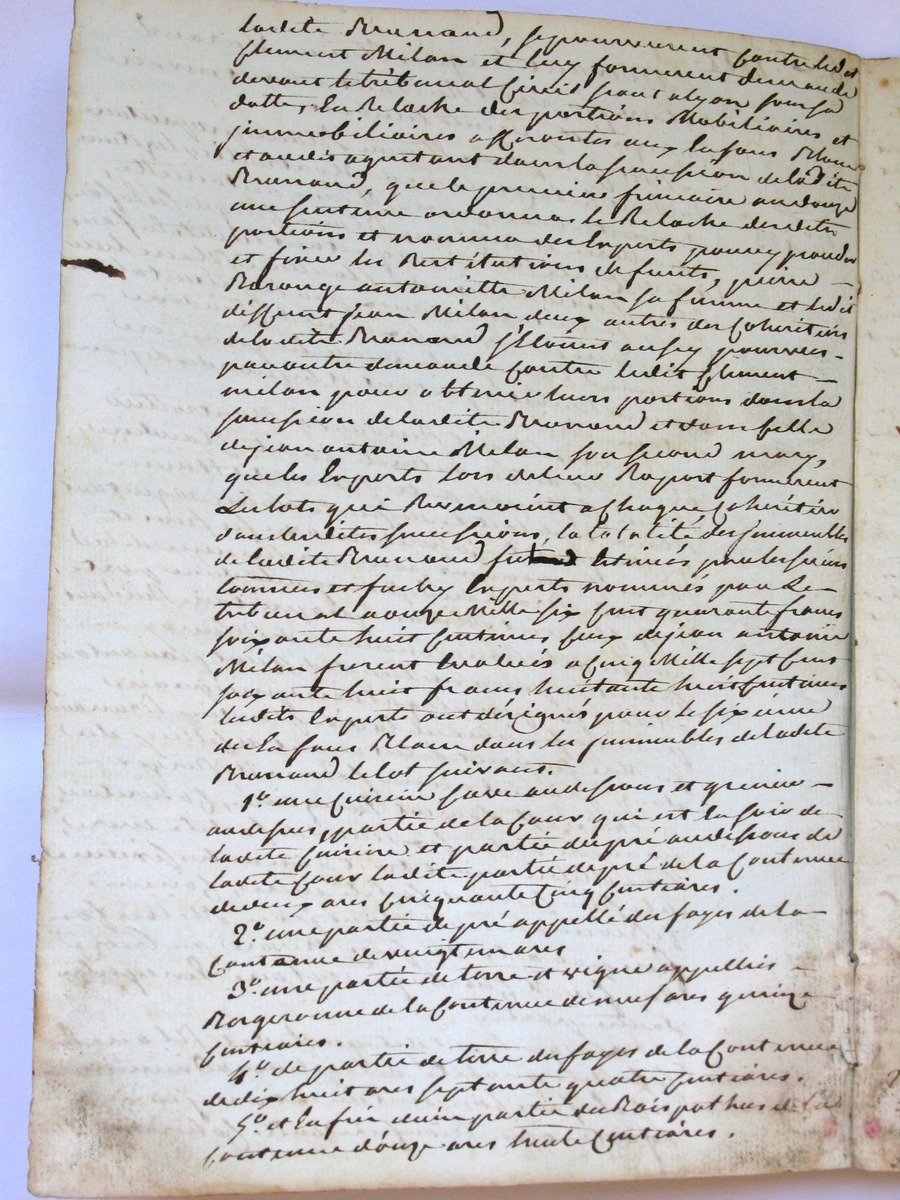 ladite Brunand, se pourvurent contre ledit
Clement Milan et luy formerent demande
devant le tribunal Civil seant a lyon sous sa
datte, en Relache des portions Mobiliaires et
jmmobiliaires afferentes aux Enfans Blanc
et audit agissant dans la succession de ladite
Brunand, que le premier frimaire an douze
une sentence ordonna le Relache desdites
portions et nomma des Experts pour y proceder
et fixer les Restitutions de fruits, pierre
antoinette Milan sa femme et ledit
jean Milan deux autres des Coheritiers
de ladite Brunand s'etoient aussy pourvus
par autre demande Contre ledit Clement
milan pour obtenir leurs portions dans la
succession de ladite Brunand et dans celle
de jean antoine Milan son second mary,
que les Experts lors de leur Raport formerent
Les lots qui Revenoient a Chaque Coheritier
dans lesdites successions, la totalité des jmmeubles
de ladite Brunand estimés par les sieurs
et Experts nommés par Le
tribunal a onze Mille six cent quarante francs
soixante huit Centimes Ceux de jean antoine
Milan furent Evalués a Cinq Mille sept Cens
soixante huit francs huitante huit Centimes
Lesdits Experts ont désignés pour le sixieme
des Enfans Blanc dans les jmmeubles de ladite
Brunand le lot suivant.
1º. une Cuisine Cave au dessous et grenier
au dessus, partie de la Cour qui est En soir de
ladite Cuisine et partie du pré au dessous de
ladite Cour ladite partie de pré de la Contenue
de deux ares Cinquante Cinq Centiares.
2º. une partie de pré appellé des fayes de la
Contenue de vingt un ares
3º. une partie de terre et vigne appellées
Rorgeronne de la Contenue de neuf ares quinze
Centiares.
4º. de partie de terre des fayes de la Contenue
de dix huit ares septante quatre Centiares.
5º. et Enfin d'une partie du Bois de la
Contenue d'onze ares trente Centiares.